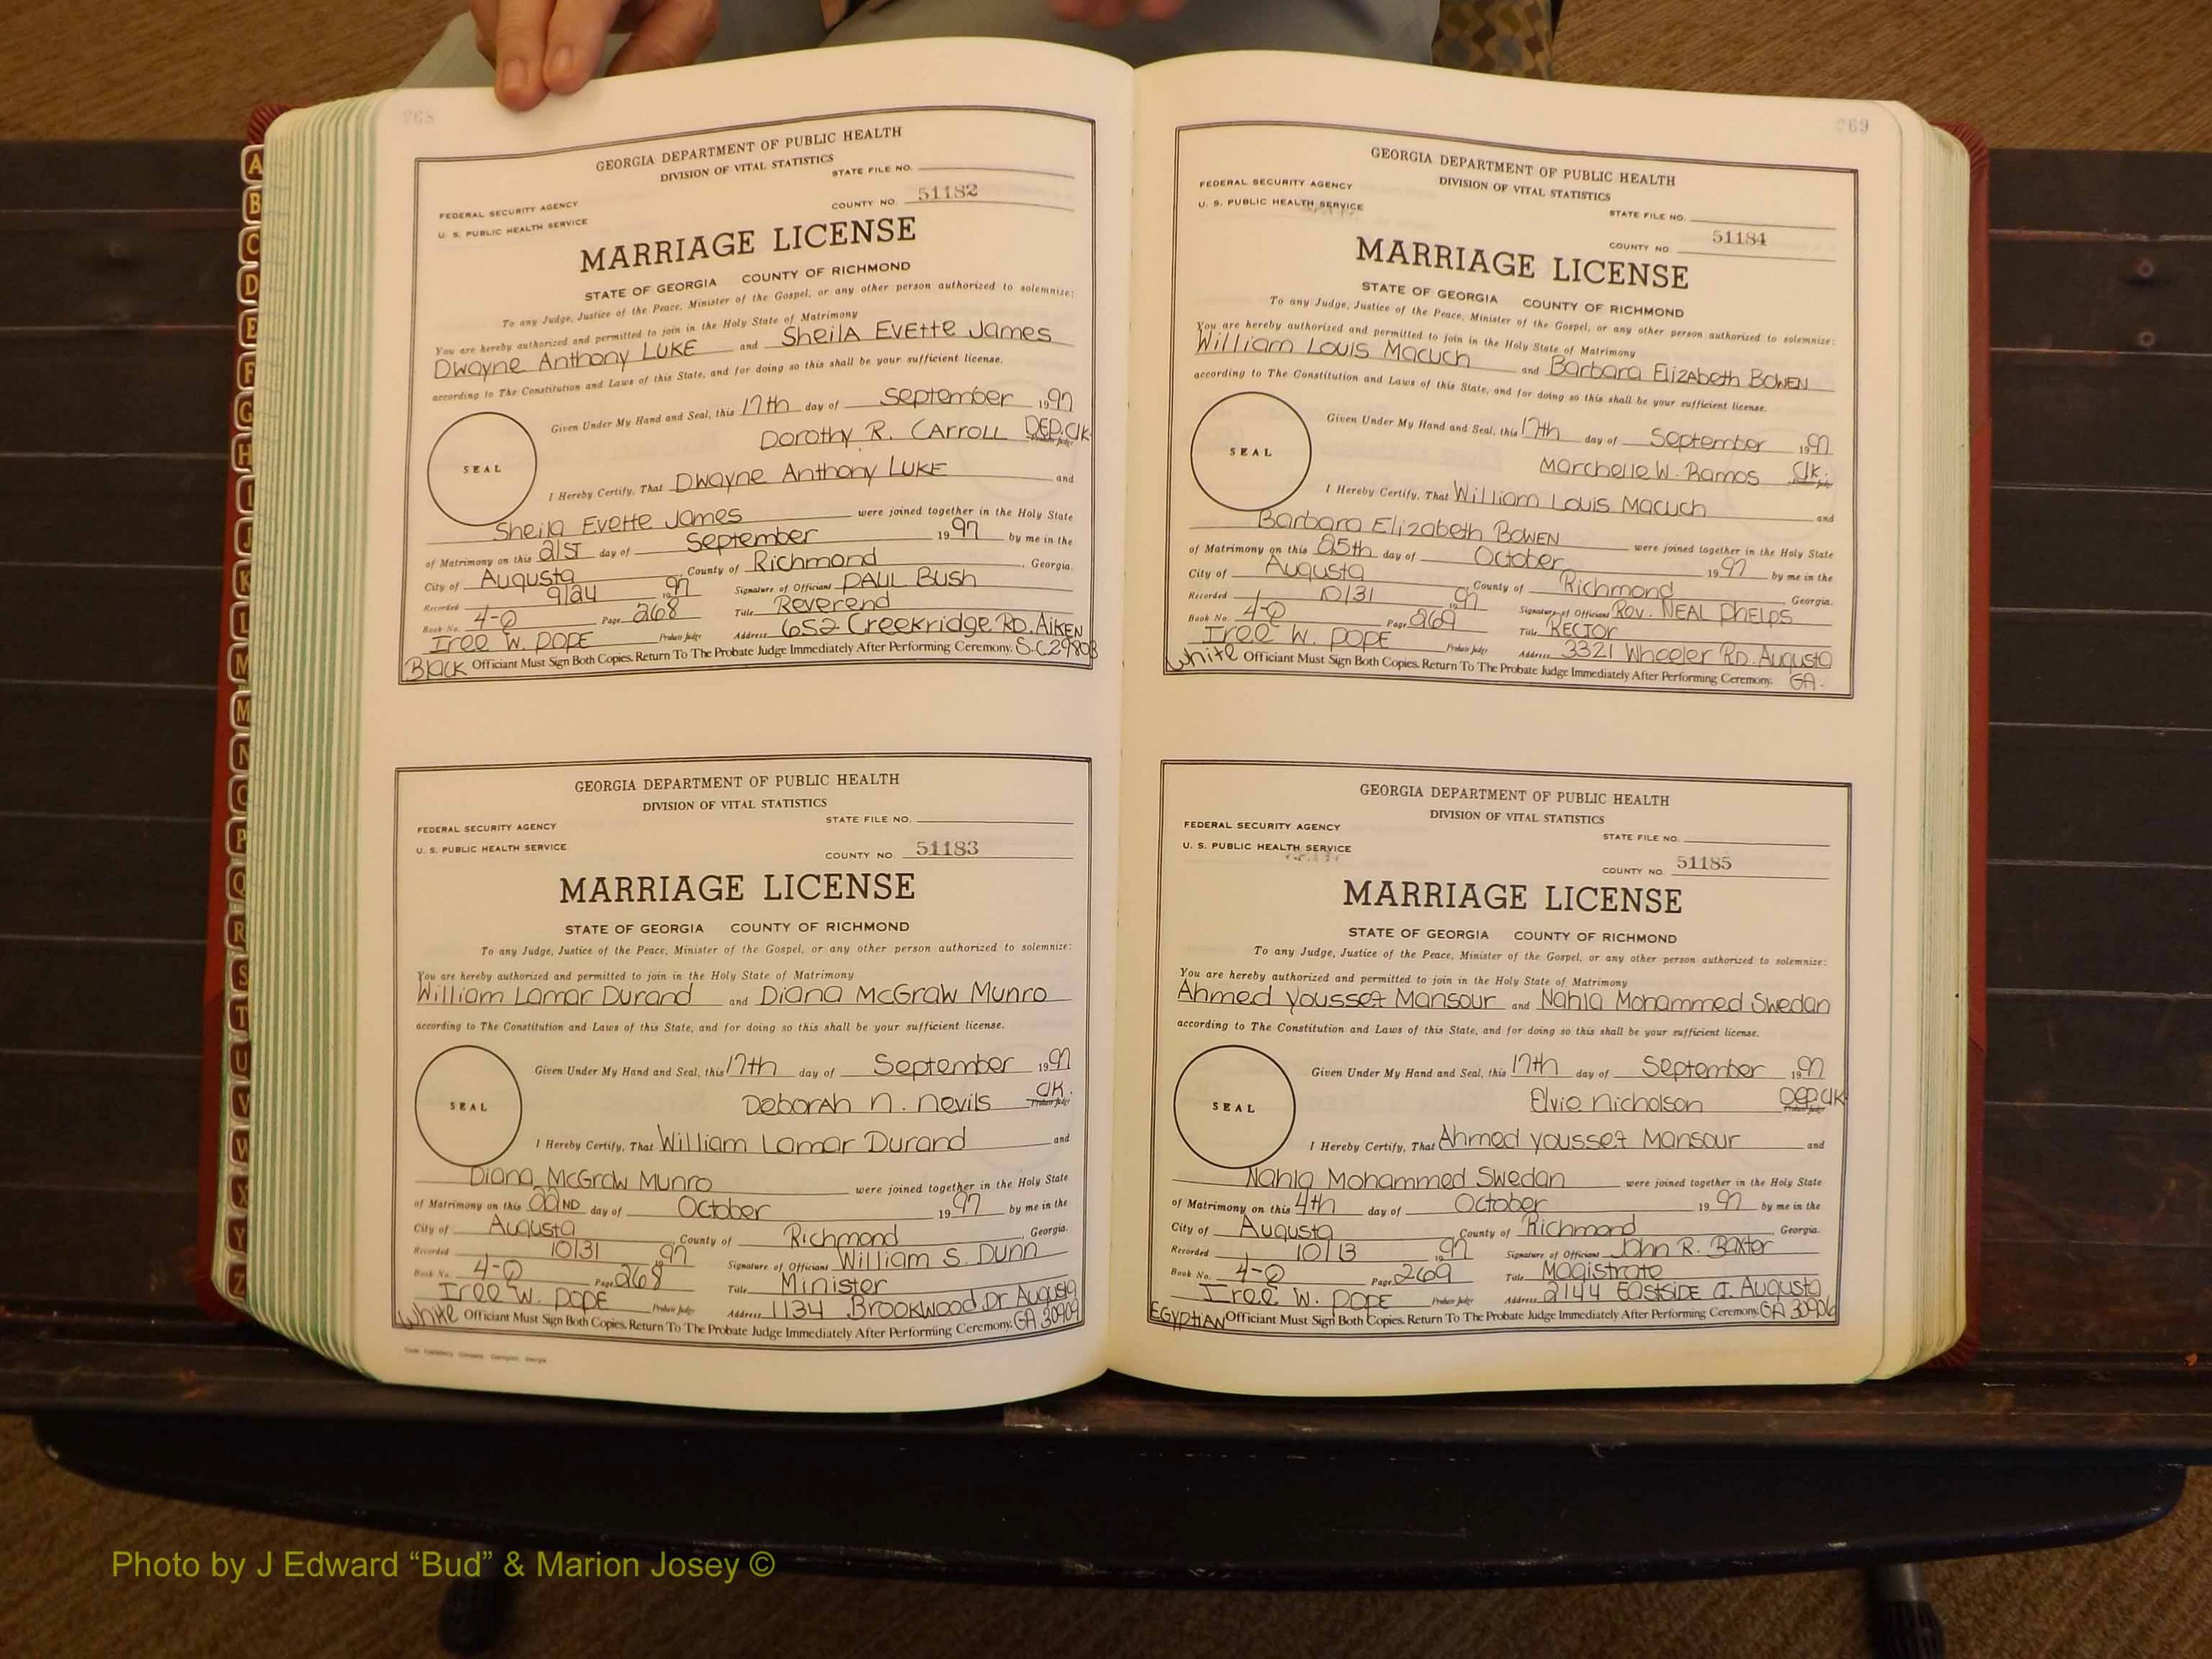 A
B
C
D
E
F
G
H
I
J
K
L
M
M
N
O
P
Q
R
S
T
U
V
W
X
Y
Z
268
GEORGIA DEPARTMENT OF PUBLIC HEALTH
DIVISION OF VITAL STATISTICS
STATE FILE NO.
FEDERAL SECURITY AGENCY
U. S. PUBLIC HEALTH SERVICE
COUNTY NO. 51182
MARRIAGE LICENSE
STATE OF GEORGIA COUNTY OF RICHMOND
To any Judge, Justice of the Peace, Minister of the Gospel, or any other person authorized to solemnize:
You are hereby authorized and permitted to join in the Holy State of Matrimony
Dwayne Anthony LUKE and Sheila Evette James
according to The Constitution and Laws of this State, and for doing so this shall be your sufficient license.
Given Under My Hand and Seal, this 17th day of September 1997
Dorothy R. Carroll DEP. Clk
Probate Judge
SEAL
I Hereby Certify, That Dwayne Anthony LUKE and
Sheila Evette James were joined together in the Holy State
of Matrimony on this 21ST day of September 1997 by me in the
City of Augusta, County of Richmond, Georgia.
Recorded 9/24 1997 Signature of Officiant PAUL Bush
Book No. 4-Q Page 268 Title Reverend
Iree W. POPE Probate Judge Address 652 Creekridge RD. Aiken
Black Officiant Must Sign Both Copies. Return To The Probate Judge Immediately After Performing Ceremony. S.C 29803
GEORGIA DEPARTMENT OF PUBLIC HEALTH
DIVISION OF VITAL STATISTICS
STATE FILE NO.
FEDERAL SECURITY AGENCY
U. S. PUBLIC HEALTH SERVICE
COUNTY NO. 51183
MARRIAGE LICENSE
STATE OF GEORGIA COUNTY OF RICHMOND
To any Judge, Justice of the Peace, Minister of the Gospel, or any other person authorized to solemnize:
You are hereby authorized and permitted to join in the Holy State of Matrimony
William Lamar Durand and Diana McGraw Munro
according to The Constitution and Laws of this State, and for doing so this shall be your sufficient license.
Given Under My Hand and Seal, this 17th day of September 1997
Deborah N. Nevils Clk.
Probate Judge
SEAL
I Hereby Certify, That William Lamar Durand and
Diana McGraw Munro were joined together in the Holy State
of Matrimony on this 22ND day of October 1997 by me in the
City of Augusta, County of Richmond, Georgia.
Recorded 10/31 1997 Signature of Officiant William S. Dunn
Book No. 4-Q Page 268 Title Minister
Iree W. POPE Probate Judge Address 1134 Brookwood Dr Augusta
White Officiant Must Sign Both Copies. Return To The Probate Judge Immediately After Performing Ceremony. GA 30909
269
GEORGIA DEPARTMENT OF PUBLIC HEALTH
DIVISION OF VITAL STATISTICS
FEDERAL SECURITY AGENCY
U. S. PUBLIC HEALTH SERVICE
STATE FILE NO.
COUNTY NO 51184
MARRIAGE LICENSE
STATE OF GEORGIA COUNTY OF RICHMOND
To any Judge, Justice of the Peace, Minister of the Gospel, or any other person authorized to solemnize:
You are hereby authorized and permitted to join in the Holy State of Matrimony
William Louis Macuch and Barbara Elizabeth BOWEN
according to The Constitution and Laws of this State, and for doing so this shall be your sufficient license.
Given Under My Hand and Seal, this 17th day of September 1997
Marchelle W. Ramos Clk.
Probate Judge
SEAL
I Hereby Certify, That William Louis Macuch and
Barbara Elizabeth BOWEN were joined together in the Holy State
of Matrimony on this 25th day of October 1997 by me in the
City of Augusta, County of Richmond, Georgia.
Recorded 10/31 1997 Signature of Officiant Rev. NEAL Phelps
Book No. 4-Q Page 269 Title RECTOR
Iree W. POPE Probate Judge Address 3321 Wheeler RD. Augusta
White Officiant Must Sign Both Copies. Return To The Probate Judge Immediately After Performing Ceremony. GA.
GEORGIA DEPARTMENT OF PUBLIC HEALTH
DIVISION OF VITAL STATISTICS
FEDERAL SECURITY AGENCY
U. S. PUBLIC HEALTH SERVICE
STATE FILE NO.
COUNTY NO. 51185
MARRIAGE LICENSE
STATE OF GEORGIA COUNTY OF RICHMOND
To any Judge, Justice of the Peace, Minister of the Gospel, or any other person authorized to solemnize:
You are hereby authorized and permitted to join in the Holy State of Matrimony
Ahmed Youssef Mansour and Nahla Mohammed Swedan
according to The Constitution and Laws of this State, and for doing so this shall be your sufficient license.
Given Under My Hand and Seal, this 17th day of September 1997
Elvie Nicholson DEP. Clk
Probate Judge
SEAL
I Hereby Certify, That Ahmed Youssef Mansour and
Nahla Mohammed Swedan were joined together in the Holy State
of Matrimony on this 4th day of October 1997 by me in the
City of Augusta, County of Richmond, Georgia.
Recorded 10/13 1997 Signature of Officiant John R. Baxter
Book No. 4-Q Page 269 Title Magistrate
Iree W. POPE Probate Judge Address 2144 EASTSIDE CT. Augusta
EGYPTIAN Officiant Must Sign Both Copies. Return To The Probate Judge Immediately After Performing Ceremony. GA 30906
Photo by J Edward “Bud” & Marion Josey ©